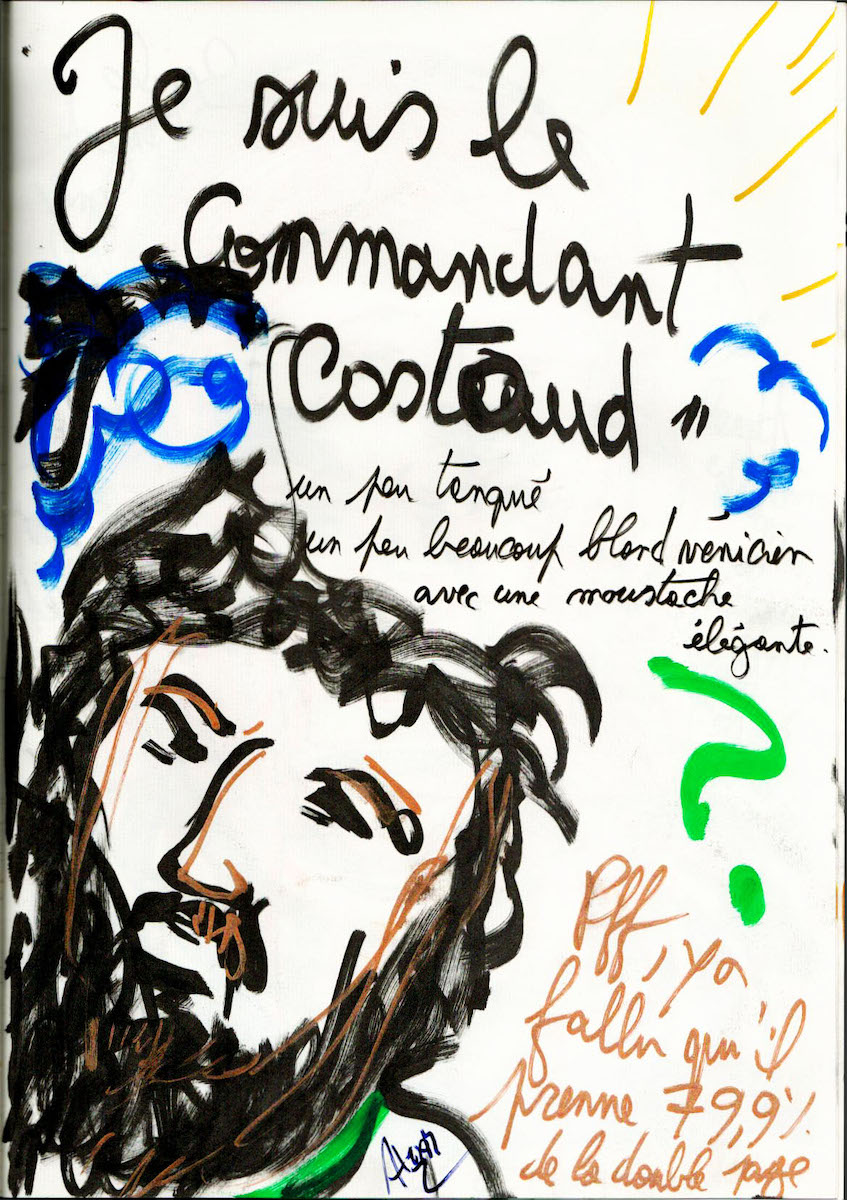 Je suis le
Commandant
Costaud "
un peu tanqué
un peu beaucoup blond vénicien
avec une moustache
élégante.
?
Pff, ya
fallu qu'il
prenne 79,9%
de la double page